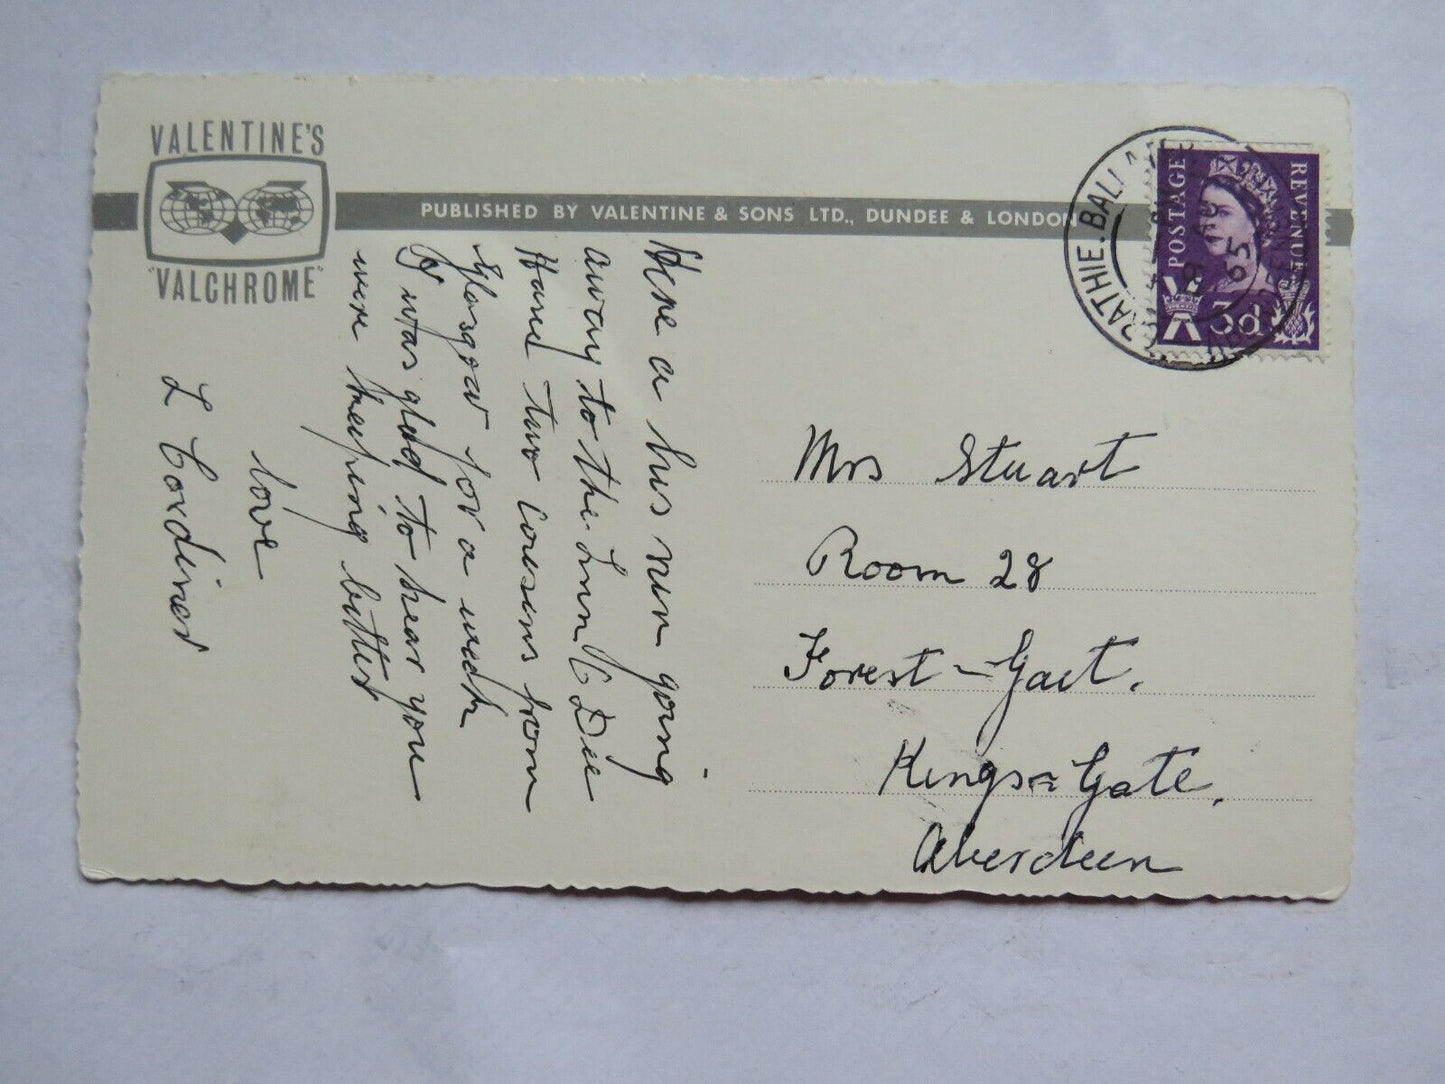 VALENTINE'S
"VALCHROME"
PUBLISHED BY VALENTINE & SONS LTD., DUNDEE & LONDON
POSTAGE
REVENUE
3d
RATHIE. BALLA
8
65
Here a bus run going
away to the Linn O Dee
Have two cousins from
Glasgow for a week
I was glad to hear you
were keeping better
love
L Cordiner
Mrs Stuart
Room 28
Forest-Gait.
Kings-Gate,
Aberdeen